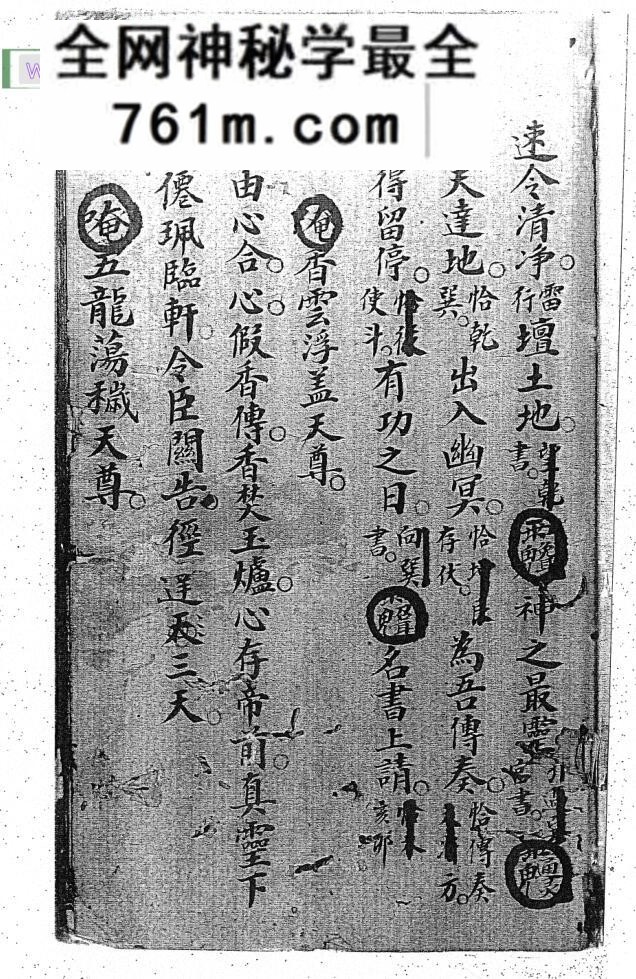 全网神秘学最全
761m.com
W
速令清净。雷行壇土地。書。神之最靈官書。
天達地。恰乾巽。出入幽冥。恰存伏。為吾傳奏。恰傳奏方。
得留停。恰使斗。有功之日。向巽書。名書上請。亥卯
唵香雲浮盖天尊。
由心合。心假香傳。香焚玉爐。心存帝前。真靈下
僊珮臨軒。令臣關告。徑逹三天。
唵五龍蕩穢天尊。